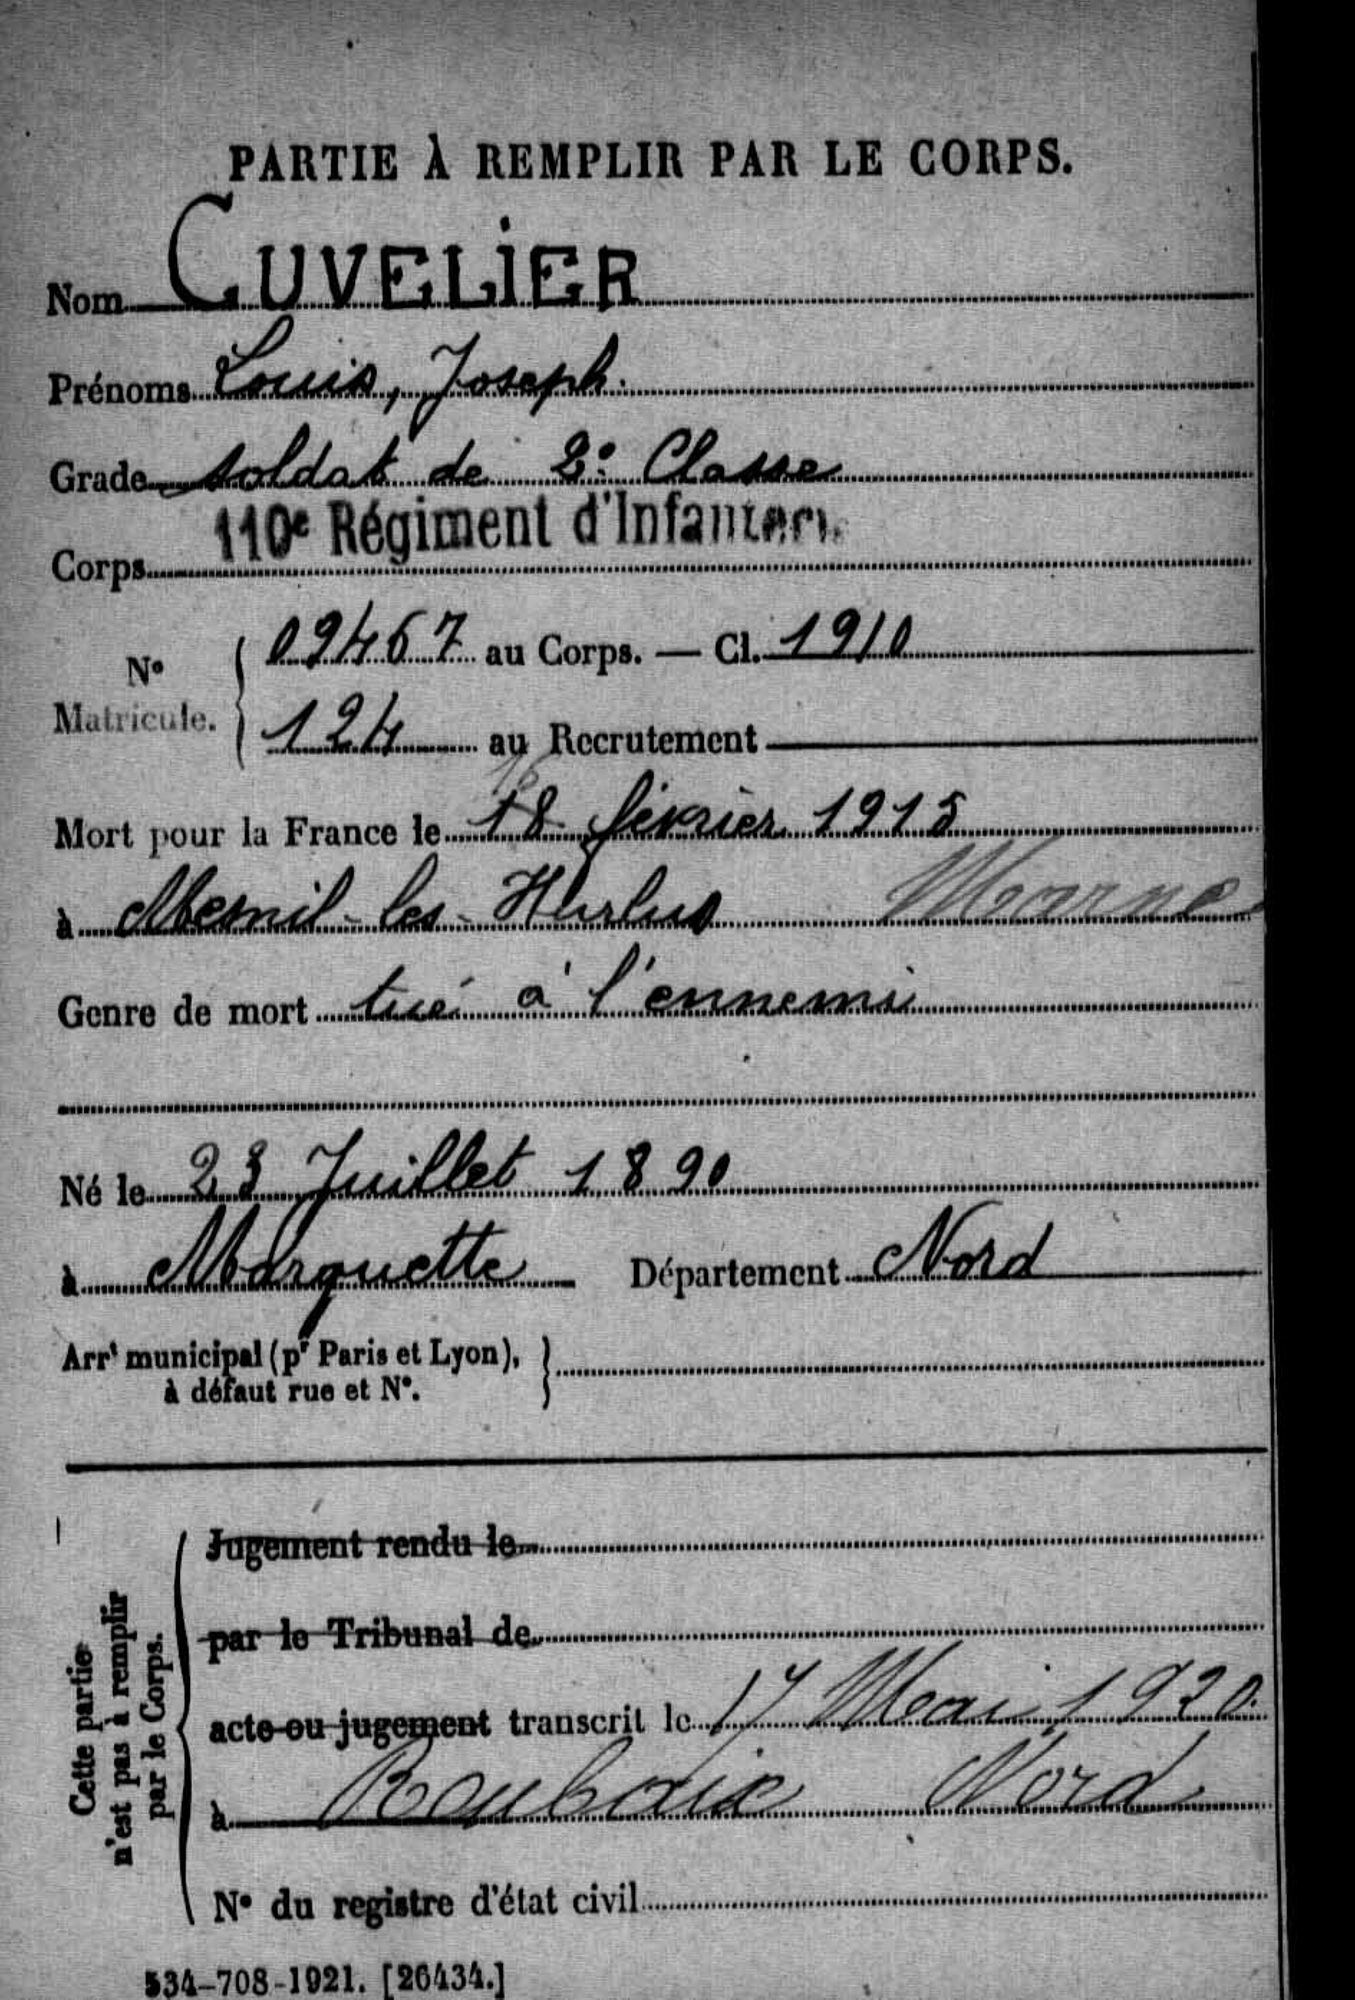 PARTIE À REMPLIR PAR LE CORPS.
Nom CUVELIER
Prénoms Louis, Joseph.
Grade soldat de 2e Classe
Corps 110e Régiment d'Infanterie
No Matricule. { 09467 au Corps. — Cl. 1910
124 au Recrutement
16
Mort pour la France le 18 février 1915
à Mesnil-les-Hurlus Marne
Genre de mort tué à l'ennemi
Né le 23 Juillet 1890
à Marquette Département Nord
Arrt municipal (pr Paris et Lyon), }
à défaut rue et No.
Cette partie
n'est pas à remplir
par le Corps.
Jugement rendu le
par le Tribunal de
acte ou jugement transcrit le 17 Mai 1920
à Roubaix Nord
No du registre d'état civil
534-708-1921. [26434.]